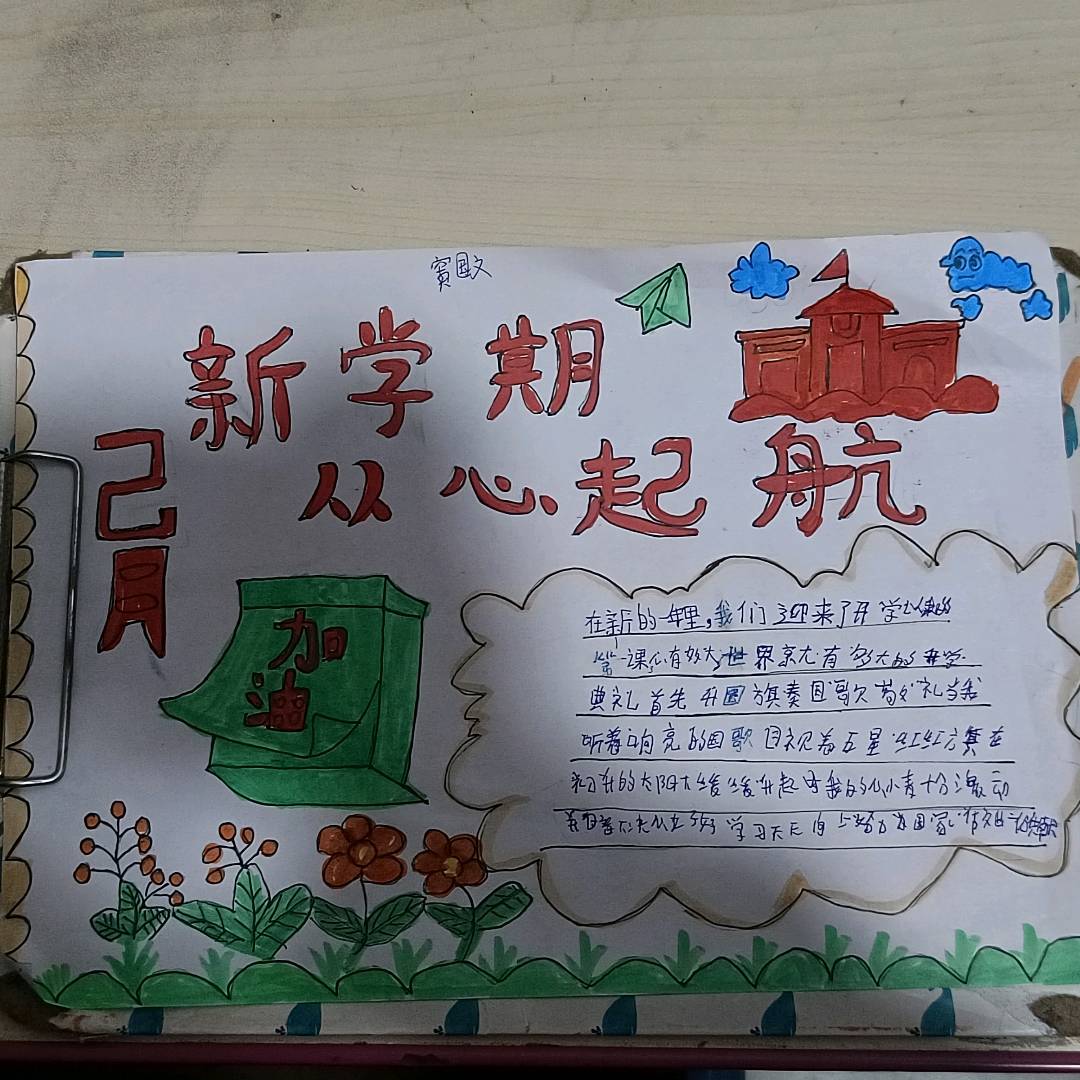 窦国文
新学期
从心起航
加
油
在新的一年里,我们迎来了开学
第一课心有多大,世界就有多大的开学
典礼首先升国旗奏国歌 礼当我
听着响亮的国歌目视着五星红红旗在
初升的太阳 缓缓升起 我的心 十分激动
学习天天向上努力为国家